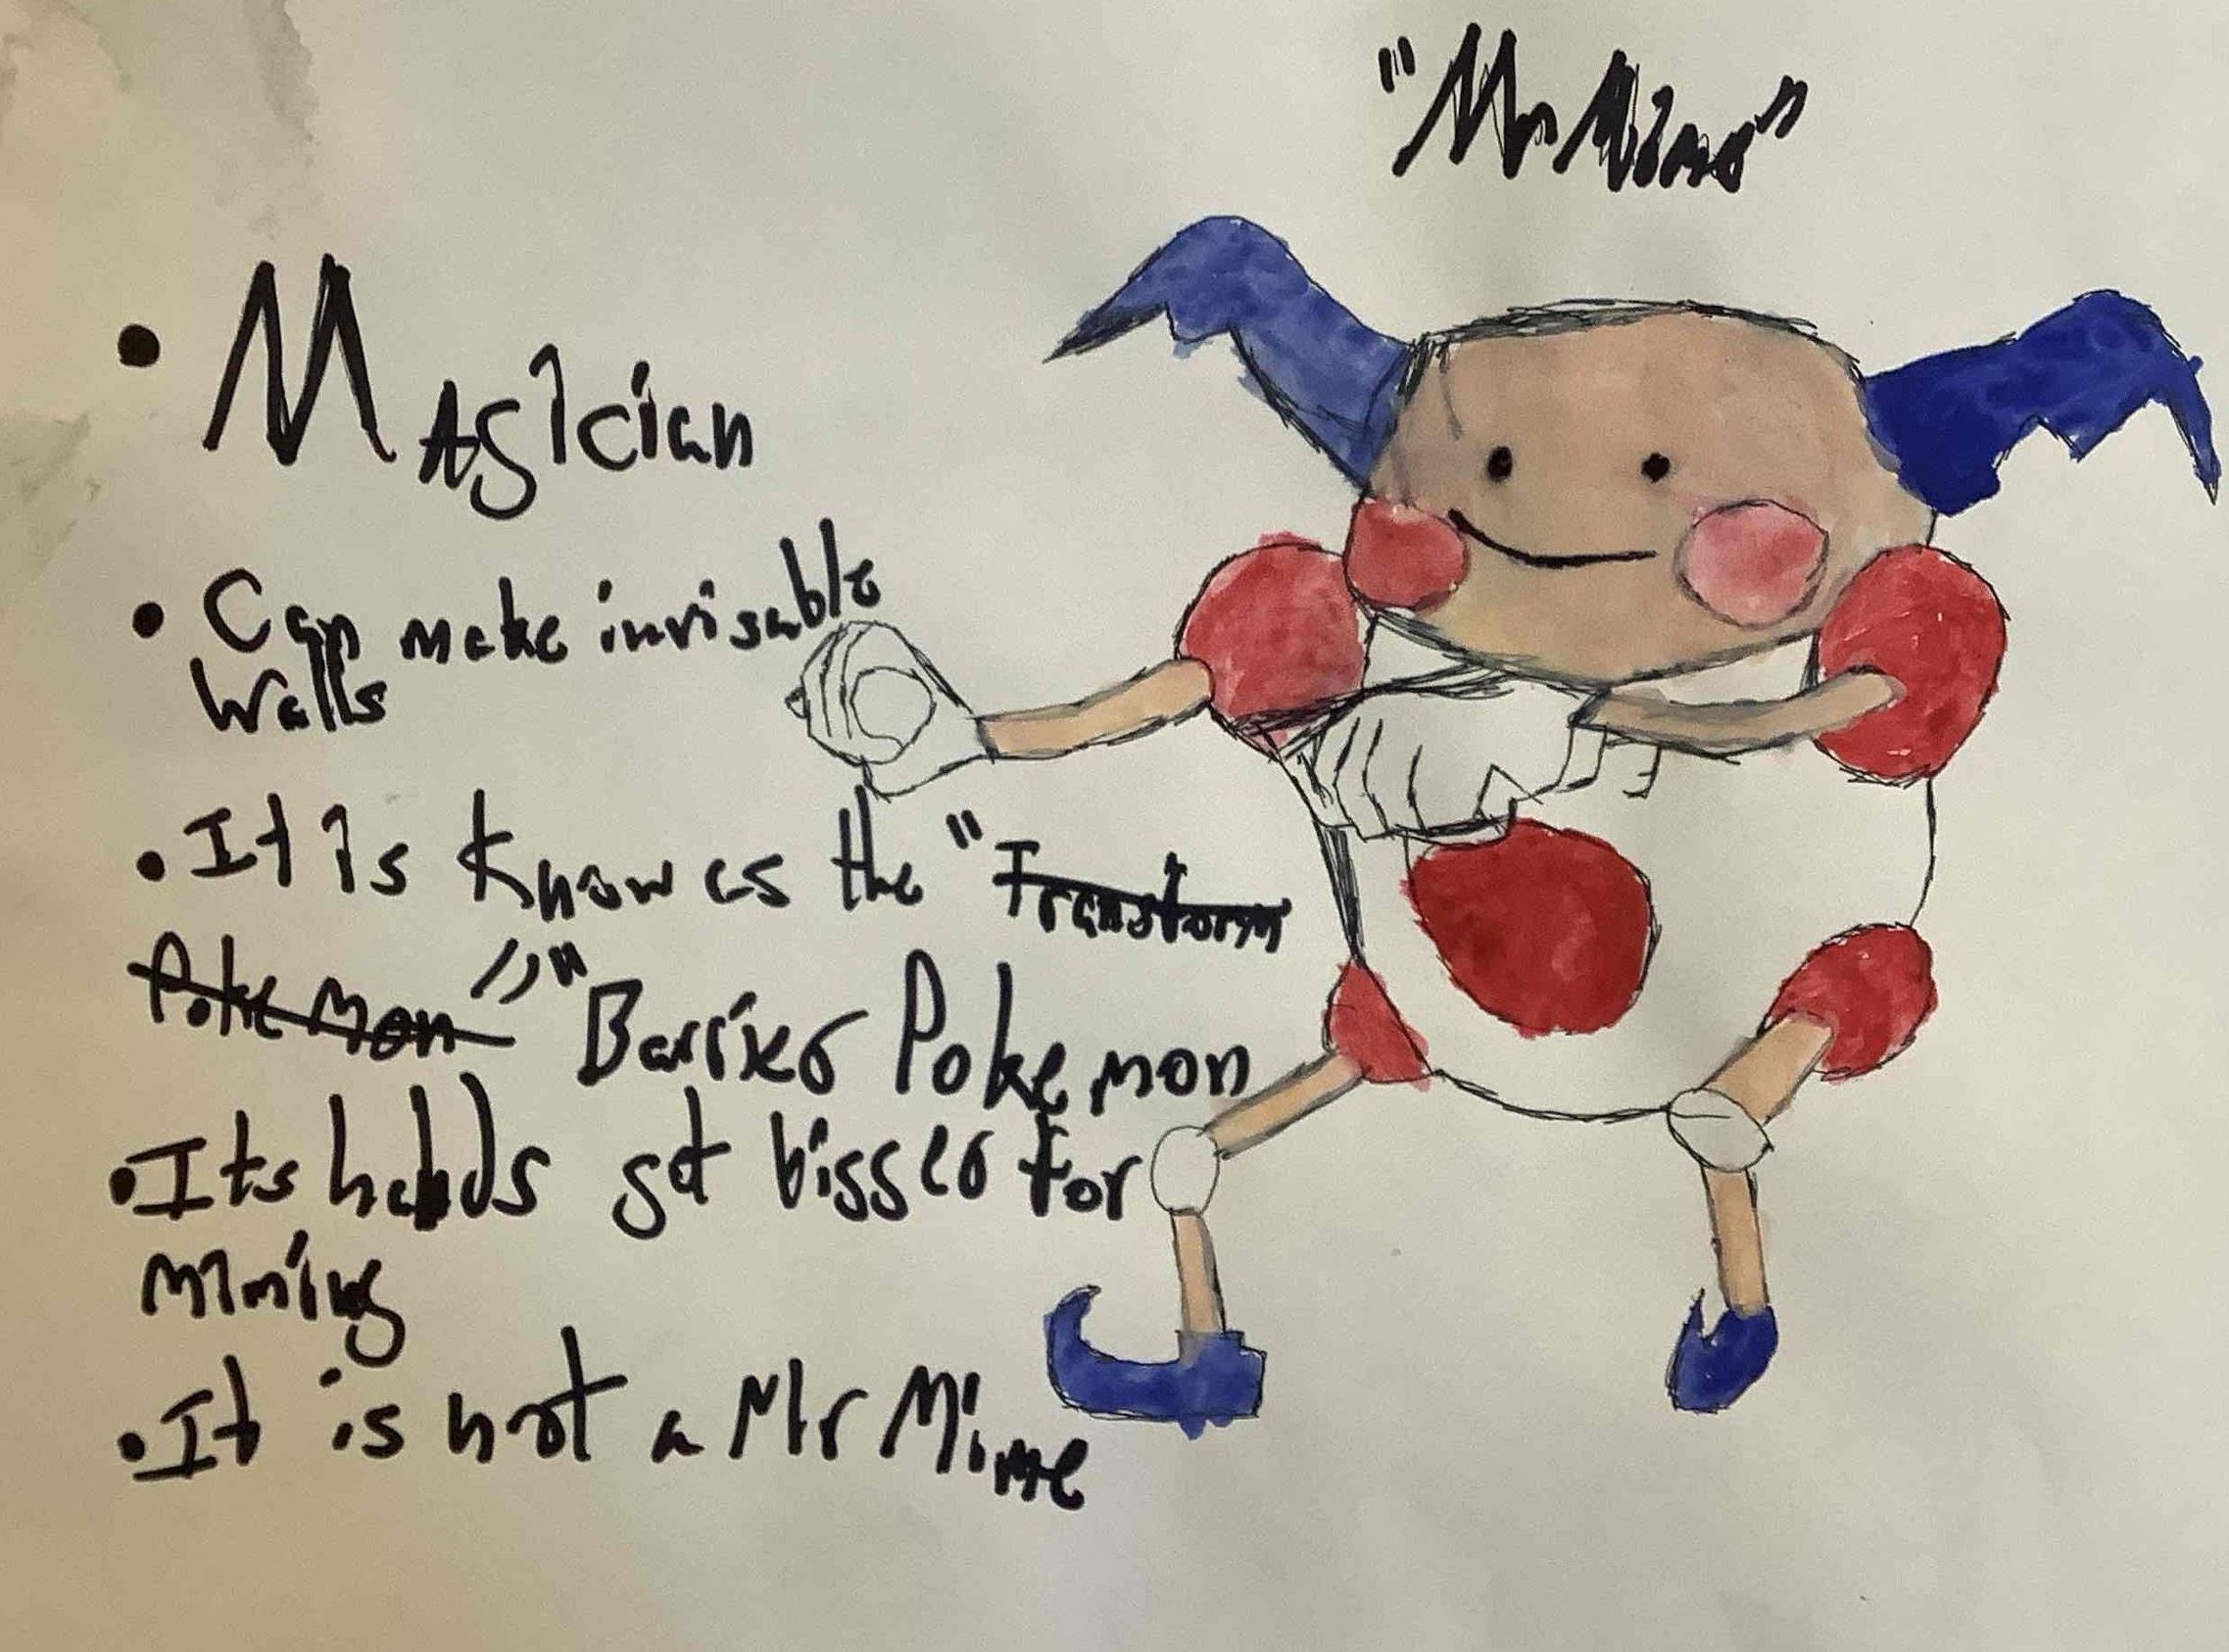 "Mr Mime"
• Magician
• Can make invisable
Walls
• It is Know as the "Transform
Pokemon" "Barrier Pokemon
• Its hands get bigger for
Miming
• It is not a Mr Mime